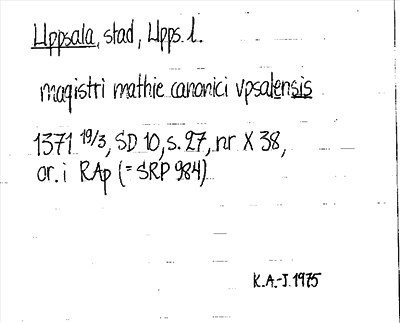 Uppsala, stad, Upps. l.
magistri mathie canonici vpsalensis
1371 19/3, SD 10, s. 27, nr X 38,
or. i RAp (= SRP 984)
K.A.-J. 1975